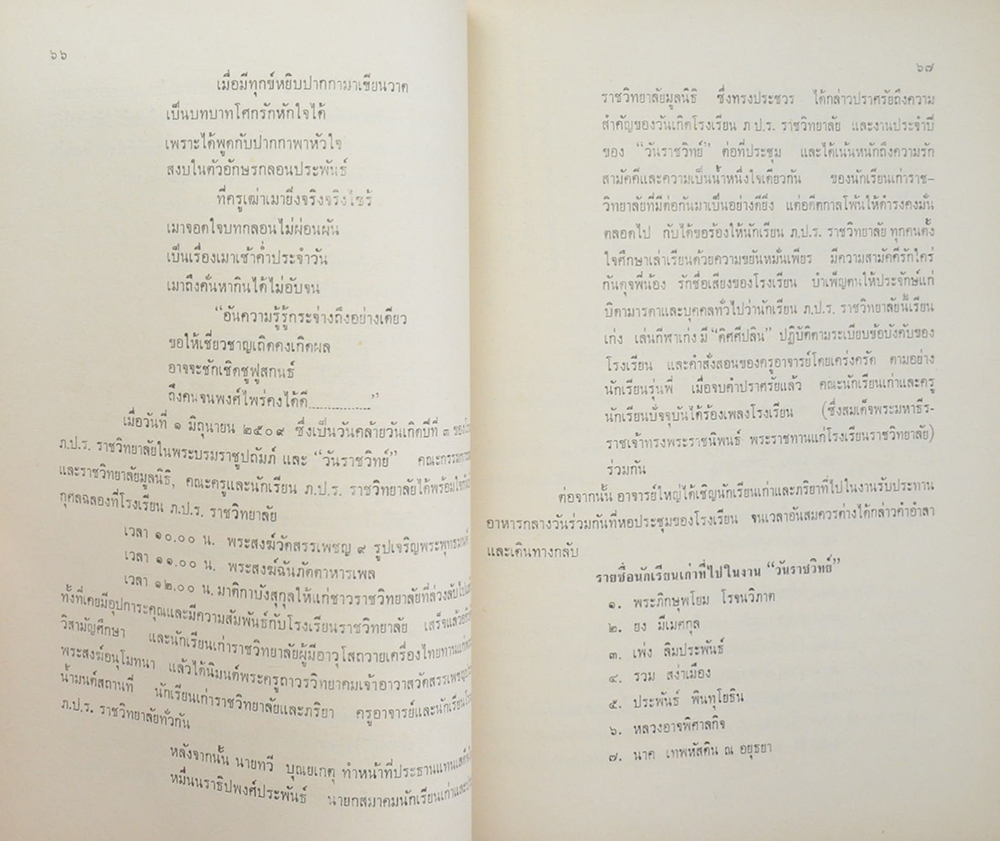 ๖๖
เมื่อมีทุกข์หยิบปากกามาเขียนวาด
เป็นบทบาทโศกรักหักใจได้
เพราะได้พูดกับปากกาพาหัวใจ
สงบในตัวอักษรกลอนประพันธ์
ที่ครูเฒ่าเมายิ่งจริงจริงไซร้
เมาจอดใจบทกลอนไม่ผ่อนผัน
เป็นเรื่องเมาเช้าค่ำประจำวัน
เมาถึงค้นหากินได้ไม่อับจน
“อันความรู้รู้กระจ่างถึงอย่างเดียว
ขอให้เชี่ยวชาญเถิดคงเกิดผล
อาจจะชักเชิดชูฟูสกนธ์
ถึงคนจนพงศ์ไพร่คงได้ดี..............”
เมื่อวันที่ ๑ มิถุนายน ๒๕๐๙ ซึ่งเป็นวันคล้ายวันเกิดปีที่ ๓
ภ.ป.ร. ราชวิทยาลัยในพระบรมราชูปถัมภ์ และ “วันราชวิทย์”
และราชวิทยาลัยมูลนิธิ, คณะครูและนักเรียน ภ.ป.ร. ราชวิทยาลัยได้พร้อมใจ
กุศลฉลองที่โรงเรียน ภ.ป.ร. ราชวิทยาลัย
เวลา ๑๐.๐๐ น. พระสงฆ์วัดสรรเพชญ ๙ รูปเจริญพระพุทธมนต์
เวลา ๑๑.๐๐ น. พระสงฆ์ฉันภัตตาหารเพล
เวลา ๑๒.๐๐ น. มาติกาบังสุกุลให้แก่ชาวราชวิทยาลัยที่ล่วงลับไป
ทั้งที่เคยมีอุปการะคุณและมีความสัมพันธ์กับโรงเรียนราชวิทยาลัย เสร็จแล้ว
วิสามัญศึกษา และนักเรียนเก่าราชวิทยาลัยผู้มีอาวุโสถวายเครื่องไทยทาน
พระสงฆ์อนุโมทนา แล้วได้นิมนต์พระครูถาวรวิทยาคมเจ้าอาวาสวัดสรรเพชญ
น้ำมนต์สถานที่ นักเรียนเก่าราชวิทยาลัยและภริยา ครูอาจารย์และนักเรียน
ภ.ป.ร. ราชวิทยาลัยทั่วกัน
หลังจากนั้น นายทวี บุณยเกตุ ทำหน้าที่ประธานแทน
หมื่นนราธิปพงศ์ประพันธ์ นายกสมาคมนักเรียนเก่า
๖๗
ราชวิทยาลัยมูลนิธิ ซึ่งทรงประชวร ได้กล่าวปราศรัยถึงความ
สำคัญของวันเกิดโรงเรียน ภ.ป.ร. ราชวิทยาลัย และงานประจำปี
ของ “วันราชวิทย์” ต่อที่ประชุม และได้เน้นหนักถึงความรัก
สามัคคีและความเป็นน้ำหนึ่งใจเดียวกัน ของนักเรียนเก่าราช-
วิทยาลัยที่มีต่อกันมาเป็นอย่างดียิ่ง แต่อดีตกาลโพ้นให้ดำรงคงมั่น
ตลอดไป กับได้ขอร้องให้นักเรียน ภ.ป.ร. ราชวิทยาลัย ทุกคนตั้ง
ใจศึกษาเล่าเรียนด้วยความขยันหมั่นเพียร มีความสามัคคีรักใคร่
กันดุจพี่น้อง รักชื่อเสียงของโรงเรียน บำเพ็ญตนให้ประจักษ์แก่
บิดามารดาและบุคคลทั่วไปว่านักเรียน ภ.ป.ร. ราชวิทยาลัยนี้เรียน
เก่ง เล่นกีฬาเก่ง มี “ดิศศีปลิน” ปฏิบัติตามระเบียบข้อบังคับของ
โรงเรียน และคำสั่งสอนของครูอาจารย์โดยเคร่งครัด ตามอย่าง
นักเรียนรุ่นพี่ เมื่อจบคำปราศรัยแล้ว คณะนักเรียนเก่าและครู
นักเรียนปัจจุบันได้ร้องเพลงโรงเรียน (ซึ่งสมเด็จพระมหาธีร-
ราชเจ้าทรงพระราชนิพนธ์ พระราชทานแก่โรงเรียนราชวิทยาลัย)
ร่วมกัน
ต่อจากนั้น อาจารย์ใหญ่ได้เชิญนักเรียนเก่าและภริยาที่ไปในงานรับประทาน
อาหารกลางวันร่วมกันที่หอประชุมของโรงเรียน จนเวลาอันสมควรต่างได้กล่าวคำอำลา
และเดินทางกลับ
รายชื่อนักเรียนเก่าที่ไปในงาน “วันราชวิทย์”
๑. พระภิกษุพโยม โรจนวิภาต
๒. ยง มีเมศกุล
๓. เพ่ง ลิมประพันธ์
๔. รวม สง่าเมือง
๕. ประพันธ์ พินทุโยธิน
๖. หลวงอาจพิศาลกิจ
๗. นาค เทพหัสดิน ณ อยุธยา